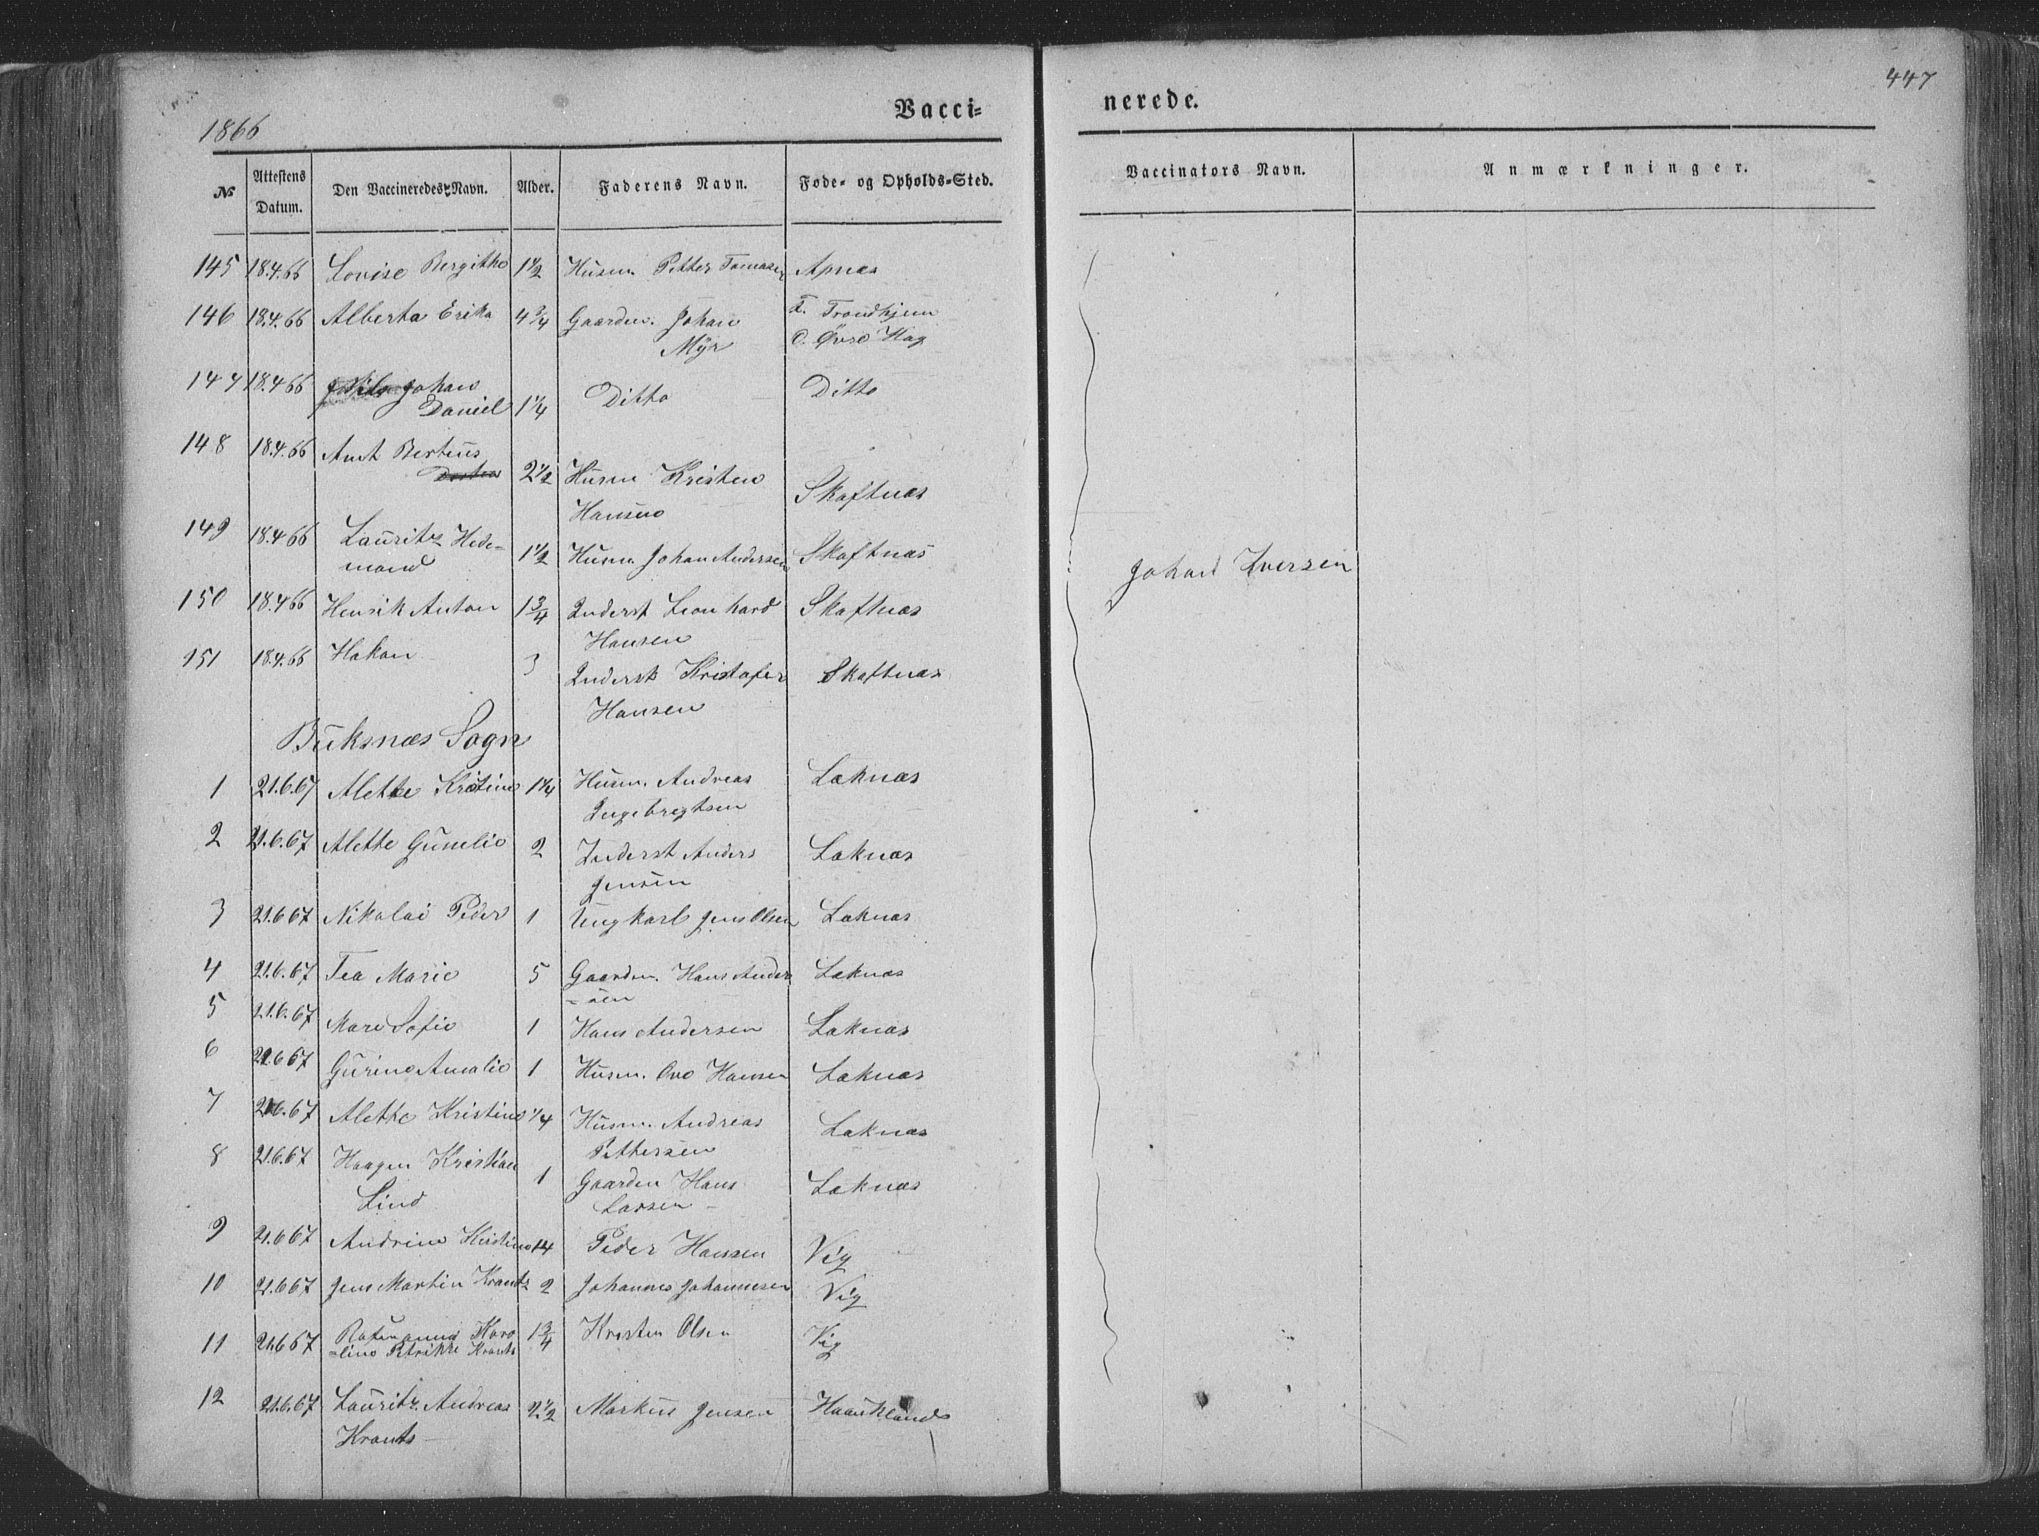 447
1866
Vacci=
nerede.
№ Attestens Datum. Den Vaccineredes Navn. Alder. Faderens Navn. Føde- og Opholds-Sted.
Vaccinators Navn. Anmærkninger.
145 18.4.66 Lovise Bergitho 1 1/2 Husm Petter Tomasen Apnæs
146 18.4.66 Alberta Erika 4 3/4 Gaardm. Johan F. Trondhjem
Myr O. Øvre Hag
147 18.4.66 Johan
Daniel 1 1/4 Ditto Ditto
148 18.4.66 Amt Berteus
2 1/2 Husm Kristen Skaftnæs
Hansen
149 18.4.66 Lauritz Hede=
mand 1 1/2 Husm. Johan Andersen Skaftnæs
Johan Iversen
150 18.4.66 Henrik Anton 1 3/4 Inderst Leonhard Skaftnæs
Hansen
151 18.4.66 Hakon 3 Inderst Kristofer Skaftnæs
Hansen
Buksnæs Sogn
1 21.6.67 Alette Kristine 1 1/4 Husm. Andreas Læknæs
Ingebregtsen
2 21.6.67 Alette Gunelie 2 Inderst Anders Læknæs
Jensen
3 21.6.67 Nikolai Peder 1 Ungkarl Jens Olsen Læknæs
4 21.6.67 Tea Marie 5 Gaardm. Hans Ander Læknæs
=sen
5 21.6.67 Mare Sofie 1 Hans Andersen Læknæs
6 21.6.67 Gurine Amalie 1 Husm. Ove Hansen Læknæs
7 21.6.67 Alette Kristine 1/4 Husm. Andreas Læknæs
Pettersen
8 21.6.67 Haagen Kristian 1 Gaardm Hans Læknæs
Lind Larsen
9 21.6.67 Andrine Kirstine 14 Peder Hansen Vig
10 21.6.67 Jens Martin Krantz 2 Johannes Johannesen Vig
11 21.6.67 Karo 1 3/4 Kristen Olsen Vig
=line Petrikke Krants
12 21.6.67 Lauritz Andreas 2 1/2 Markus Jensen Haukland
Krants